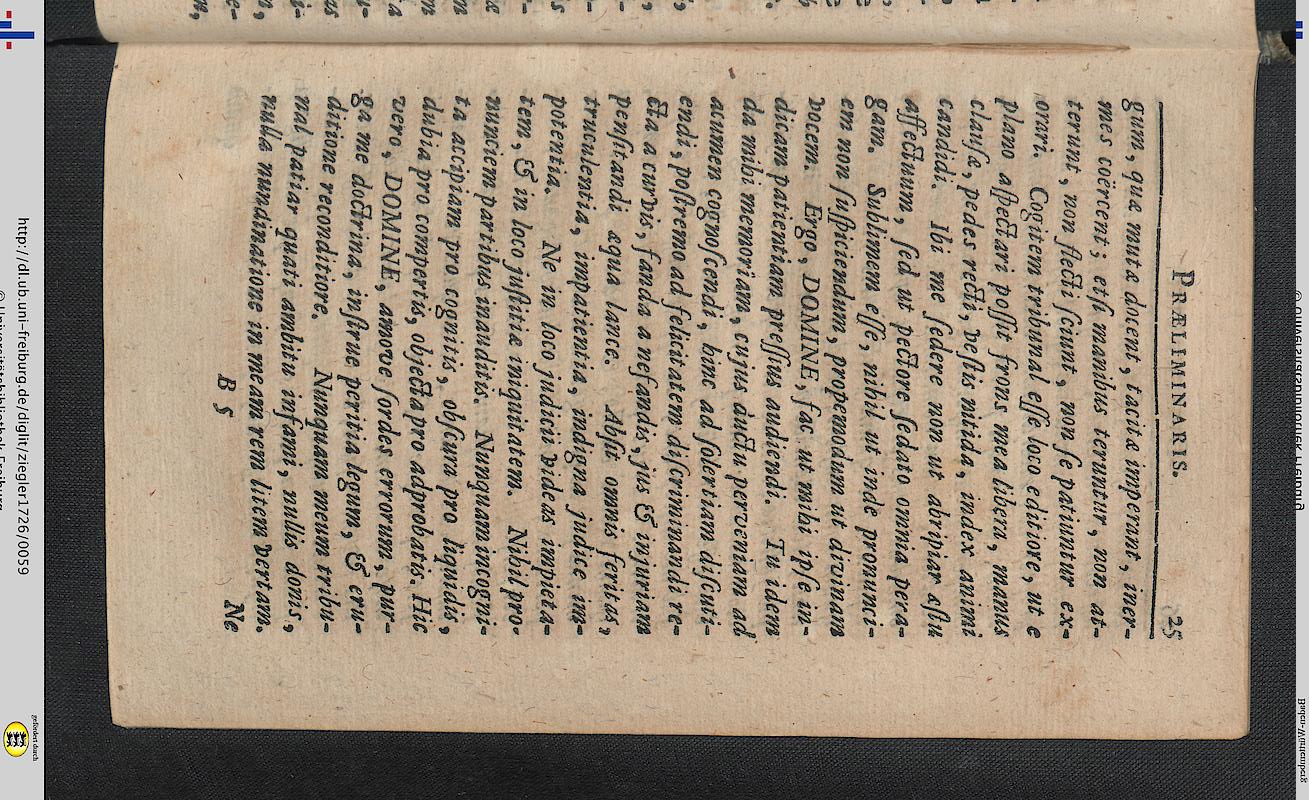 PRÆLIMINARIS. 25
gum, quæ mutæ docent, tacitæ imperant, iner-
mes coërcent; etsi manibus teruntur, non at-
terunt, non flecti sciunt, non se patiuntur ex-
orari. Cogitem tribunal esse loco editiore, ut e
plano aspectari possit frons mea libera, manus
clausæ, pedes recti, vestis nitida, index animi
candidi. Ibi me sedere non ut abripiar æstu
affectuum, sed ut pectore sedato omnia pera-
gam. Sublimem esse, nihil ut inde pronunci-
em non suspiciendum, propemodum ut divinam
vocem. Ergo, DOMINE, fac ut mihi ipse in-
dicam patientiam pressius audiendi. Tu idem
da mihi memoriam, cujus ductu perveniam ad
acumen cognoscendi, hinc ad solertiam discuti-
endi, postremo ad felicitatem discriminandi re-
cta a curvis, fanda a nefandis, jus & injuriam
pensitandi æqua lance. Absit omnis feritas,
truculentia, impatientia, indigna judice im-
potentia. Ne in loco judicii videas impieta-
tem, & in loco justitiæ iniquitatem. Nihil pro-
nunciem partibus inauditis. Nunquam incogni-
ta accipiam pro cognitis, obscura pro liquidis,
dubia pro compertis, objecta pro adprobatis. Hic
vero, DOMINE, amove sordes errorum, pur-
ga me doctrina, instrue peritia legum, & eru-
ditione reconditiore. Nunquam meum tribu-
nal patiar quati ambitu infami, nullis donis,
nulla nundinatione in meam rem litem vertam.
B 5 Ne
http://dl.ub.uni-freiburg.de/diglit/ziegler1726/0059
gefördert durch